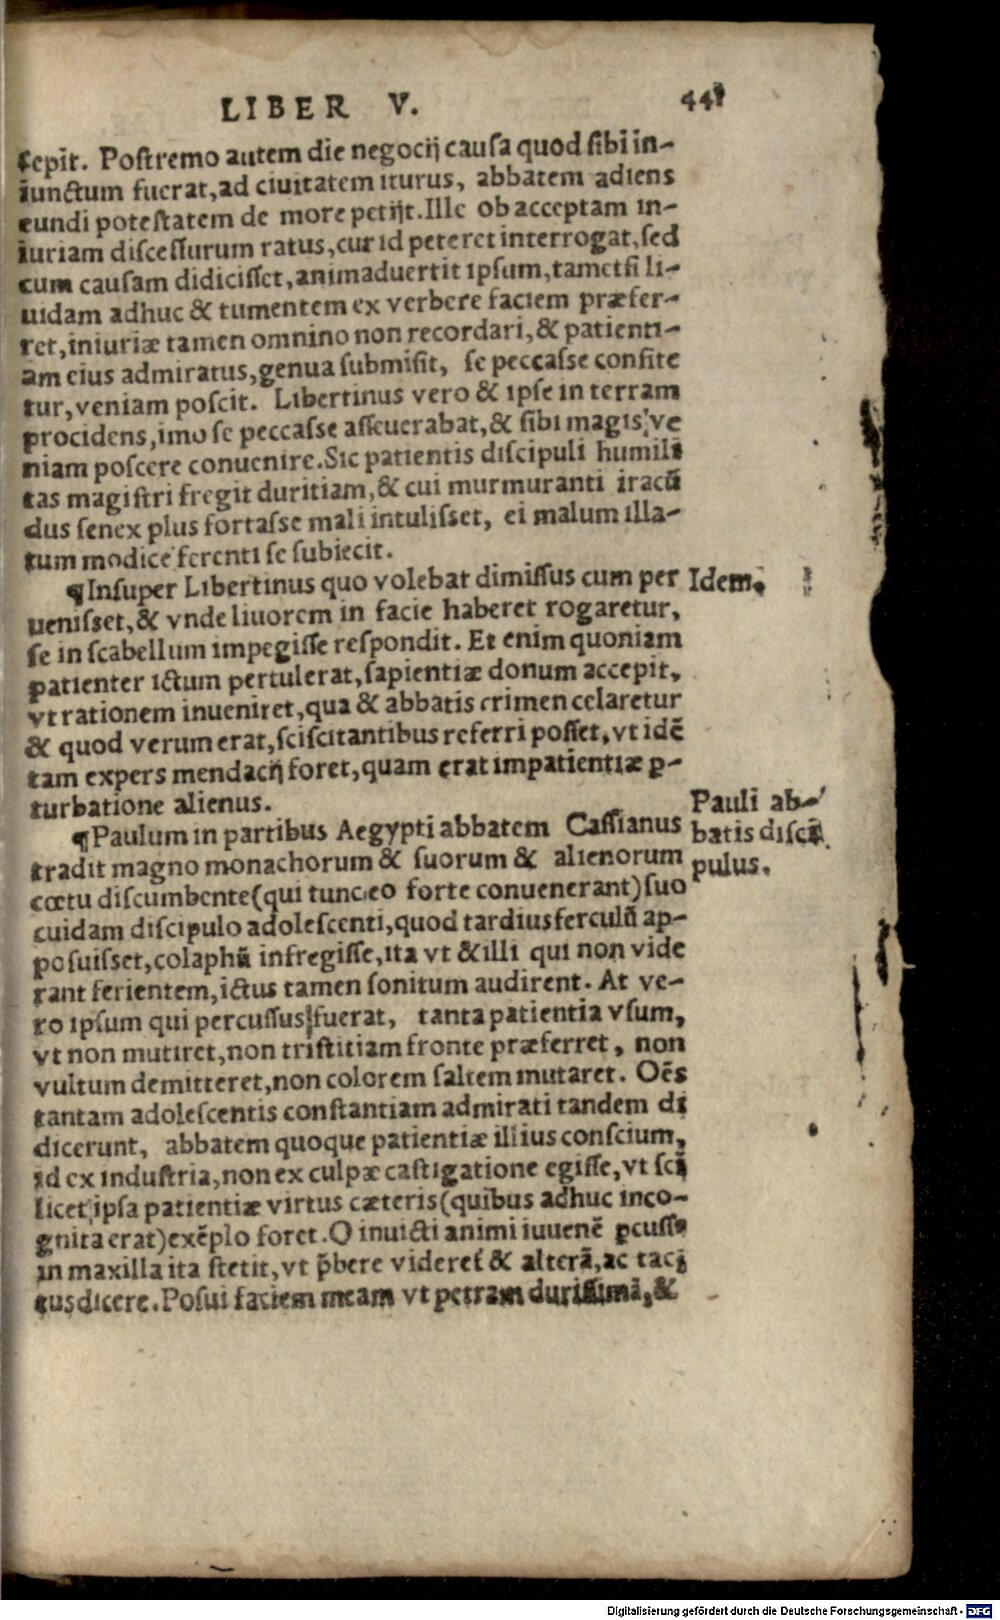 LIBER V. 441
cepit. Postremo autem die negocij causa quod sibi in-
iunctum fuerat, ad ciuitatem iturus, abbatem adiens
eundi potestatem de more petijt. Ille ob acceptam in-
iuriam discessurum ratus, cur id peteret interrogat, sed
cum causam didicisset, animaduertit ipsum, tametsi li-
uidam adhuc & tumentem ex verbere faciem præfer-
ret, iniuriæ tamen omnino non recordari, & patienti-
am eius admiratus, genua submisit, se peccasse confite
tur, veniam poscit. Libertinus vero & ipse in terram
procidens, imo se peccasse asseuerabat, & sibi magis ve
niam poscere conuenire. Sic patientis discipuli humili
tas magistri fregit duritiam, & cui murmuranti iracū
dus senex plus fortasse mali intulisset, ei malum illa-
tum modice ferenti se subiecit.
¶Insuper Libertinus quo volebat dimissus cum per
uenisset, & vnde liuorem in facie haberet rogaretur,
se in scabellum impegisse respondit. Et enim quoniam
patienter ictum pertulerat, sapientiæ donum accepit,
vt rationem inueniret, qua & abbatis crimen celaretur
& quod verum erat, sciscitantibus referri posset, vt idē
tam expers mendacij foret, quam erat impatientiæ ꝑ-
turbatione alienus.
Idem.
¶Paulum in partibus Aegypti abbatem Cassianus
tradit magno monachorum & suorum & alienorum
cœtu discumbente (qui tunc eo forte conuenerant) suo
cuidam discipulo adolescenti, quod tardius ferculū ap-
posuisset, colaphū infregisse, ita vt & illi qui non vide
rant ferientem, ictus tamen sonitum audirent. At ve-
ro ipsum qui percussus fuerat, tanta patientia vsum,
vt non mutiret, non tristitiam fronte præferret, non
vultum demitteret, non colorem saltem mutaret. Oēs
tantam adolescentis constantiam admirati tandem di
dicerunt, abbatem quoque patientiæ illius conscium,
id ex industria, non ex culpæ castigatione egisse, vt sci
licet ipsa patientiæ virtus cæteris (quibus adhuc inco-
gnita erat) exēplo foret. O inuicti animi iuuenē ꝑcussꝰ
in maxilla ita stetit, vt p̄bere videret & alterā, ac taci
tus dicere. Posui faciem meam vt petram durissimā, &
Pauli ab-
batis disci
pulus.
Digitalisierung gefördert durch die Deutsche Forschungsgemeinschaft - DFG